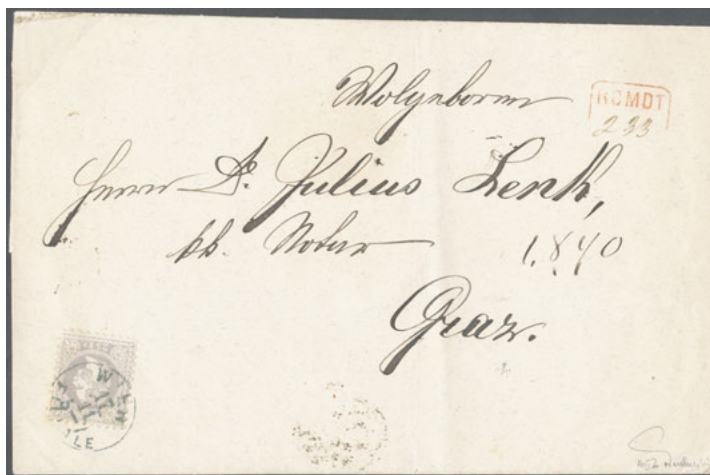 Wolgeborn
RCMDT
233
Herrn Dr. Julius Lenk,
kk. Notar
1,840
Graz.
WIEN